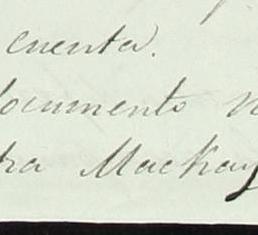 cuenta.
documento
Mackay